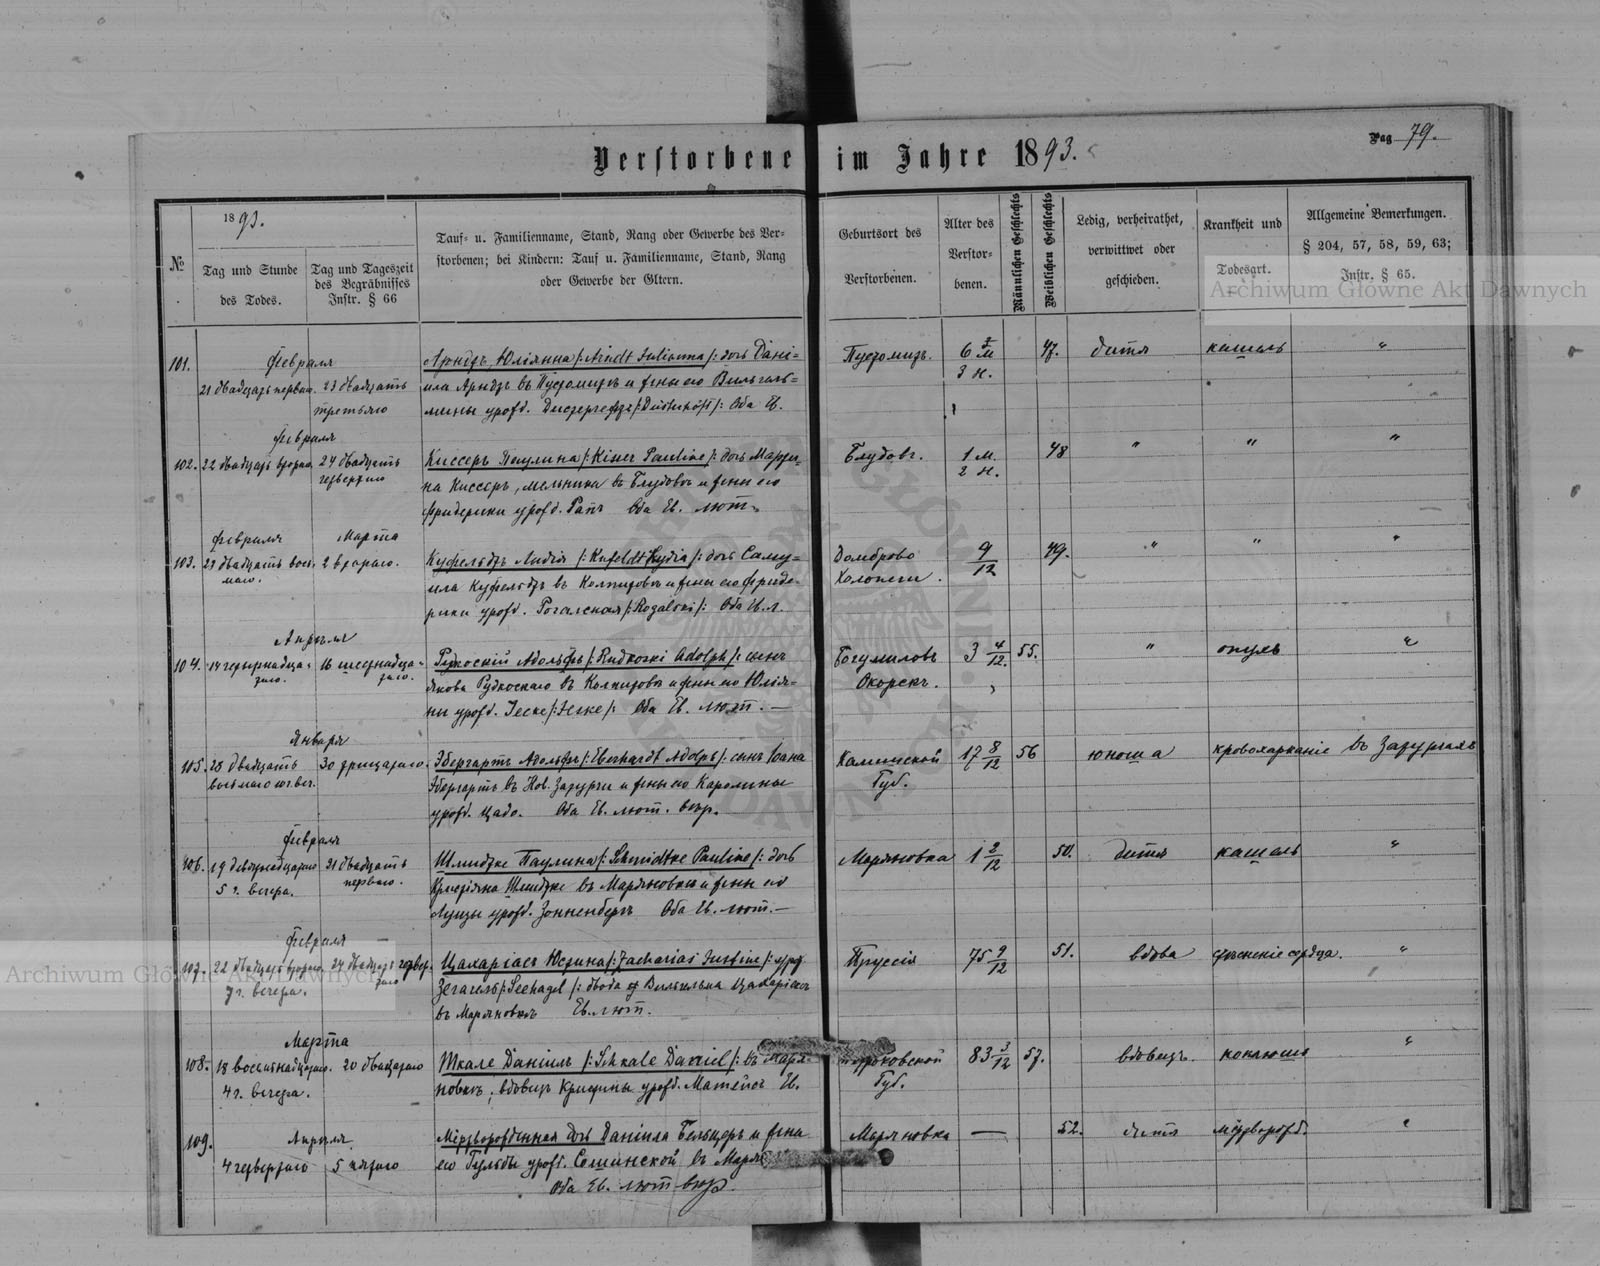 Verstorbene im Jahre 1893.
Pag 79.
№
1893.
Tag und Stunde
des Todes.
Tag und Tageszeit
des Begräbnisses
Instr. § 66
Tauf- u. Familienname, Stand, Rang oder Gewerbe des Ver-
storbenen; bei Kindern: Tauf u. Familienname, Stand, Rang
oder Gewerbe der Eltern.
Geburtsort des
Verstorbenen.
Alter des
Verstor-
benen.
Männlichen Geschlechts
Weiblichen Geschlechts
Ledig, verheirathet,
verwittwet oder
geschieden.
Krankheit und
Todesart.
Allgemeine Bemerkungen.
§ 204, 57, 58, 59, 63;
Instr. § 65.
Archiwum Główne Akt Dawnych
101.
Февраля
21 двадцать первого
23 двадцать
третьяго
Арндтъ Юліянна /: Arndt Julianna /: дочь Дані-
ила Арндтъ въ Пустомытъ и жены его Вильгель-
мины урожд. Оба Ев.
Пустомытъ.
3 н.
47.
дитя
кашель
"
Февраля
102.
22 двадцать втораго
24 двадцать
четвертаго
Киссеръ Паулина /: Kiser Pauline /: дочь Марти-
на Киссеръ, мельника въ Блудовъ и жены его
Фридерики урожд. Рапъ Оба Ев. лют.
Блудовъ.
1 м.
2 н.
48
"
"
"
Февраля
Марта
103.
2 втораго.
Куфельдтъ Лидія /: Kufeldt Lydia /: дочь Саму-
ила Куфельдтъ въ Колпитовъ и жены его Фриде-
рики урожд. Рогальская /: Rogalski /: Оба Ев. л.
Домброво
Холопеги.
9/12
49.
"
"
"
Апрѣля
104.
14 четырнадца-
таго.
16 шестнадца-
таго.
Рудкоскій Адольфъ /: Rudkoski Adolph /: сынъ
Якова Рудкоскаго въ Колпитовъ и жены его Юлія-
ны урожд. Іеске /: Jeske /: Оба Ев. лют. —
Богумиловъ
Окорскъ.
3 4/12.
55.
"
"
Января
105.
28 двадцать
30 тридцатаго.
Эбергартъ Адольфъ /: Eberhardt Adolph /: сынъ Іоана
Эбергартъ въ Нов. Затурцы и жены его Каролины
урожд. Цадо. Оба Ев. лют. вѣр.
Калишской
Губ.
17 8/12
56
юноша
кровохарканіе
въ Затурцахъ
Февраля
106.
19 девятнадцатаго
5 ч. вечера.
21 двадцать
перваго.
Шмидтке Паулина /: Schmidtke Pauline /: дочь
Христіяна Шмидтке въ Маряновкѣ и жены его
Луизы урожд. Зонненбергъ Оба Ев. лют. —
Маряновка
1 2/12
50.
дитя
кашель
"
Февраля
107.
22 двадцать втораго
7 ч. вечера.
24 двадцать четвер-
таго
Цахаріасъ Юстина /: Zacharias Justine /: урожд
Зегагель /: Seehagel /: вдова Вильгельма Цахаріасъ
въ Маряновкѣ Ев. лют.
Пруссія
75 9/12
51.
вдова
сердца.
"
Archiwum Główne Akt Dawnych
Марта
108.
18 восьмнадцатаго.
4 ч. вечера.
20 двадцатаго
Шкале Даніилъ /: Schkale Daniel /: въ Маря-
новкѣ, вдовецъ Христины урожд. Матейсъ Ев.
Губ.
83 3/12
57.
вдовецъ.
коклюшъ
"
109.
Апрѣля
4 четвертаго
5 пятаго
Мертворожденная дочь Даніила Бельцеръ и жены
его Гульды урожд. Сошинской въ Маря
Оба Ев. лют вѣр.
Маряновка
—
52.
дитя
мертворожд.
"